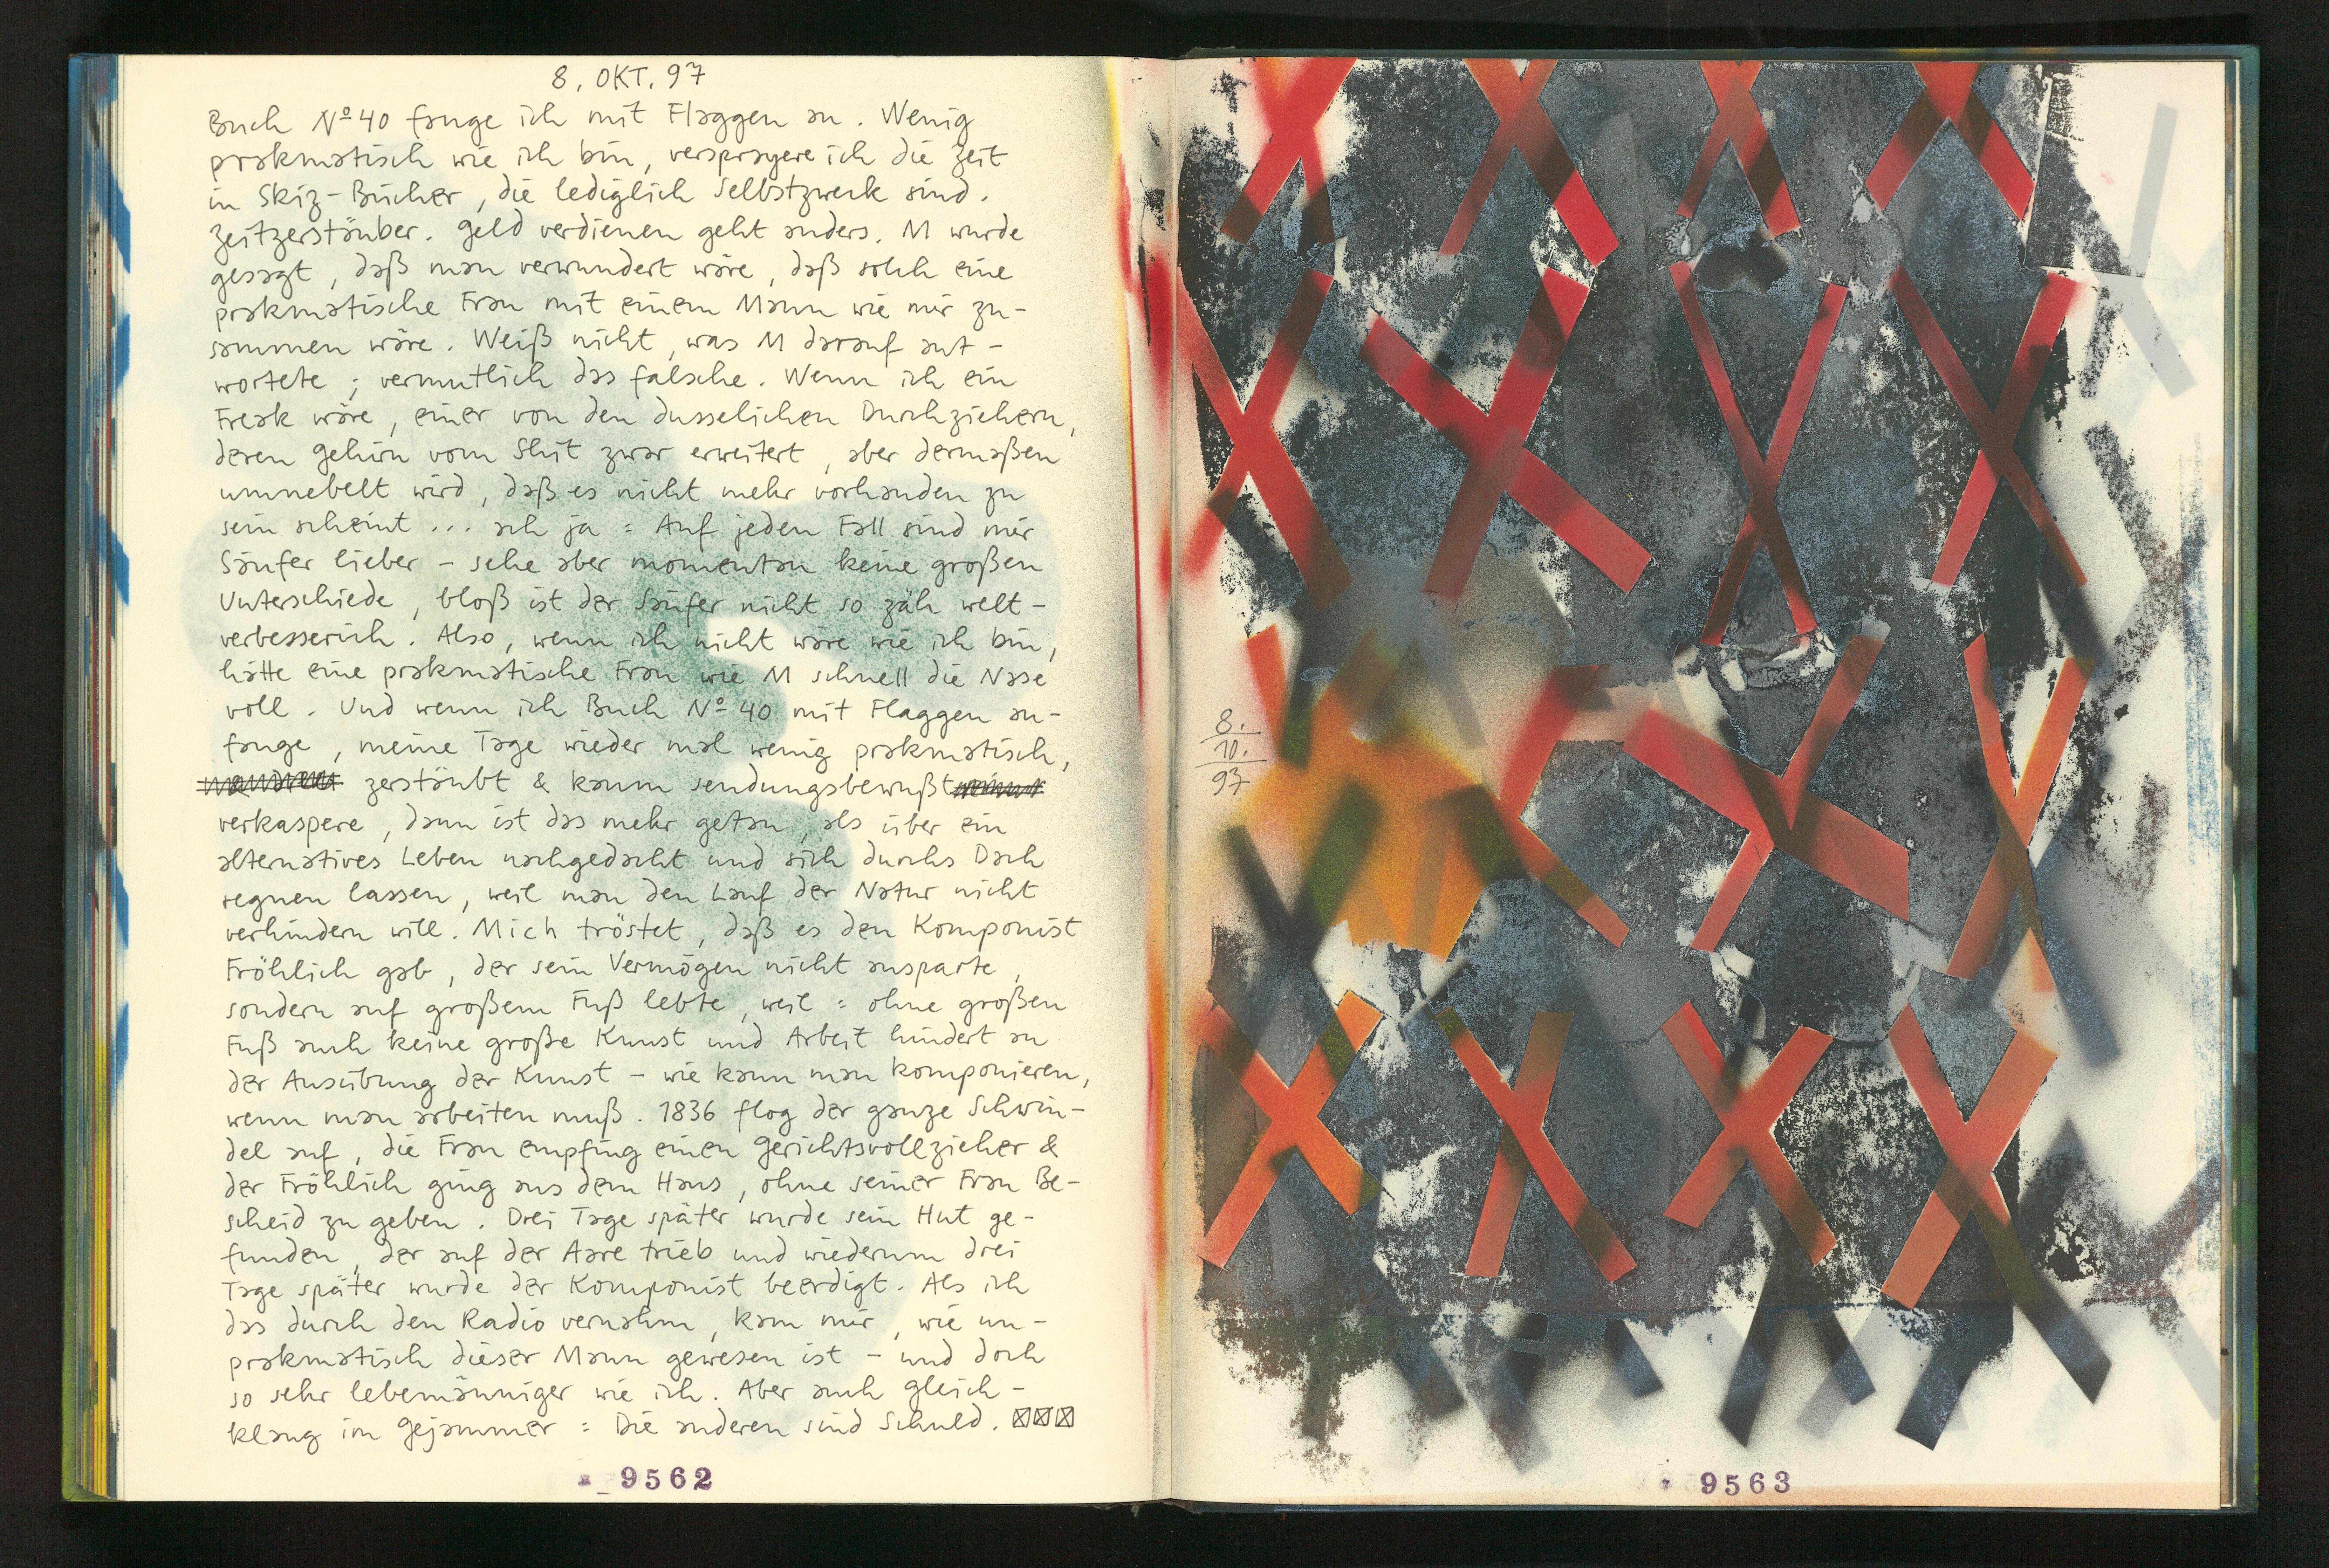 8. OKT. 97
Buch Nº 40 fange ich mit Flaggen an. Wenig
prakmatisch wie ich bin, versprayere ich die Zeit
in Skiz-Bücher, die lediglich Selbstzweck sind.
Zeitzerstäuber. Geld verdienen geht anders. M wurde
gesagt, daß man verwundert wäre, daß solch eine
prakmatische Frau mit einem Mann wie mir zu-
sammen wäre. Weiß nicht, was M darauf ant-
wortete; vermutlich das falsche. Wenn ich ein
Freak wäre, einer von den dusselichen Durchziehern,
deren Gehirn vom Shit zwar erweitert, aber dermaßen
umnebelt wird, daß es nicht mehr vorhanden zu
sein scheint ... ach ja: Auf jeden Fall sind mir
Säufer lieber - sehe aber momentan keine großen
Unterschiede, bloß ist der Säufer nicht so zäh welt-
verbesserich. Also, wenn ich nicht wäre wie ich bin,
hätte eine prakmatische Frau wie M schnell die Nase
voll. Und wenn ich Buch Nº 40 mit Flaggen an-
fange, meine Tage wieder mal wenig prakmatisch,
zerstäubt & kaum sendungsbewußt
verkaspere, dann ist das mehr getan, als über ein
alternatives Leben nachgedacht und sich durchs Dach
regnen lassen, weil man den Lauf der Natur nicht
verhindern will. Mich tröstet, daß es den Komponist
Fröhlich gab, der sein Vermögen nicht ansparte,
sondern auf großem Fuß lebte, weil: ohne großen
Fuß auch keine große Kunst und Arbeit hindert an
der Ausübung der Kunst - wie kann man komponieren,
wenn man arbeiten muß. 1836 flog der ganze Schwin-
del auf, die Frau empfing einen Gerichtsvollzieher &
der Fröhlich ging aus dem Haus, ohne seiner Frau Be-
scheid zu geben. Drei Tage später wurde sein Hut ge-
funden, der auf der Aare trieb und wiederum drei
Tage später wurde der Komponist beerdigt. Als ich
das durch den Radio vernahm, kam mir, wie un-
prakmatisch dieser Mann gewesen ist - und doch
so sehr lebemänniger wie ich. Aber auch Gleich-
klang im Gejammer: Die anderen sind Schuld.
9562
8.
10.
97
9563